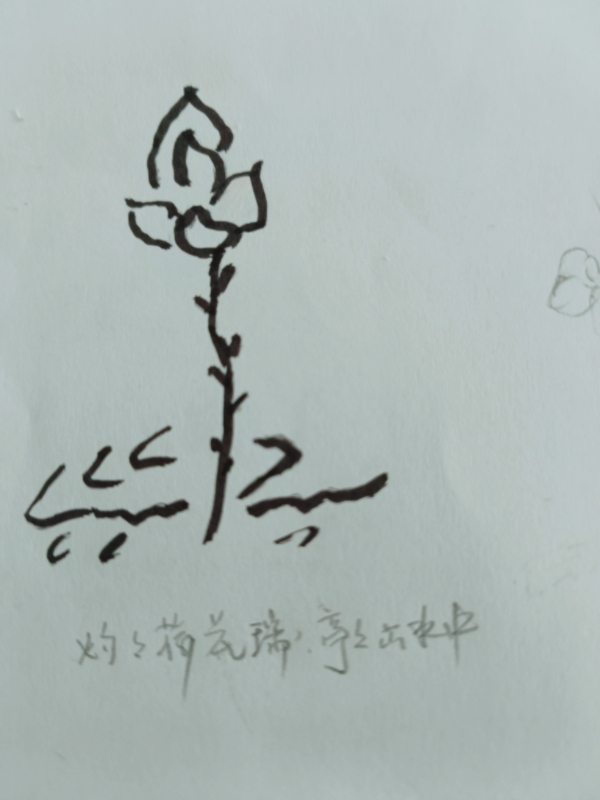 灼々荷花瑞,亭々出水中